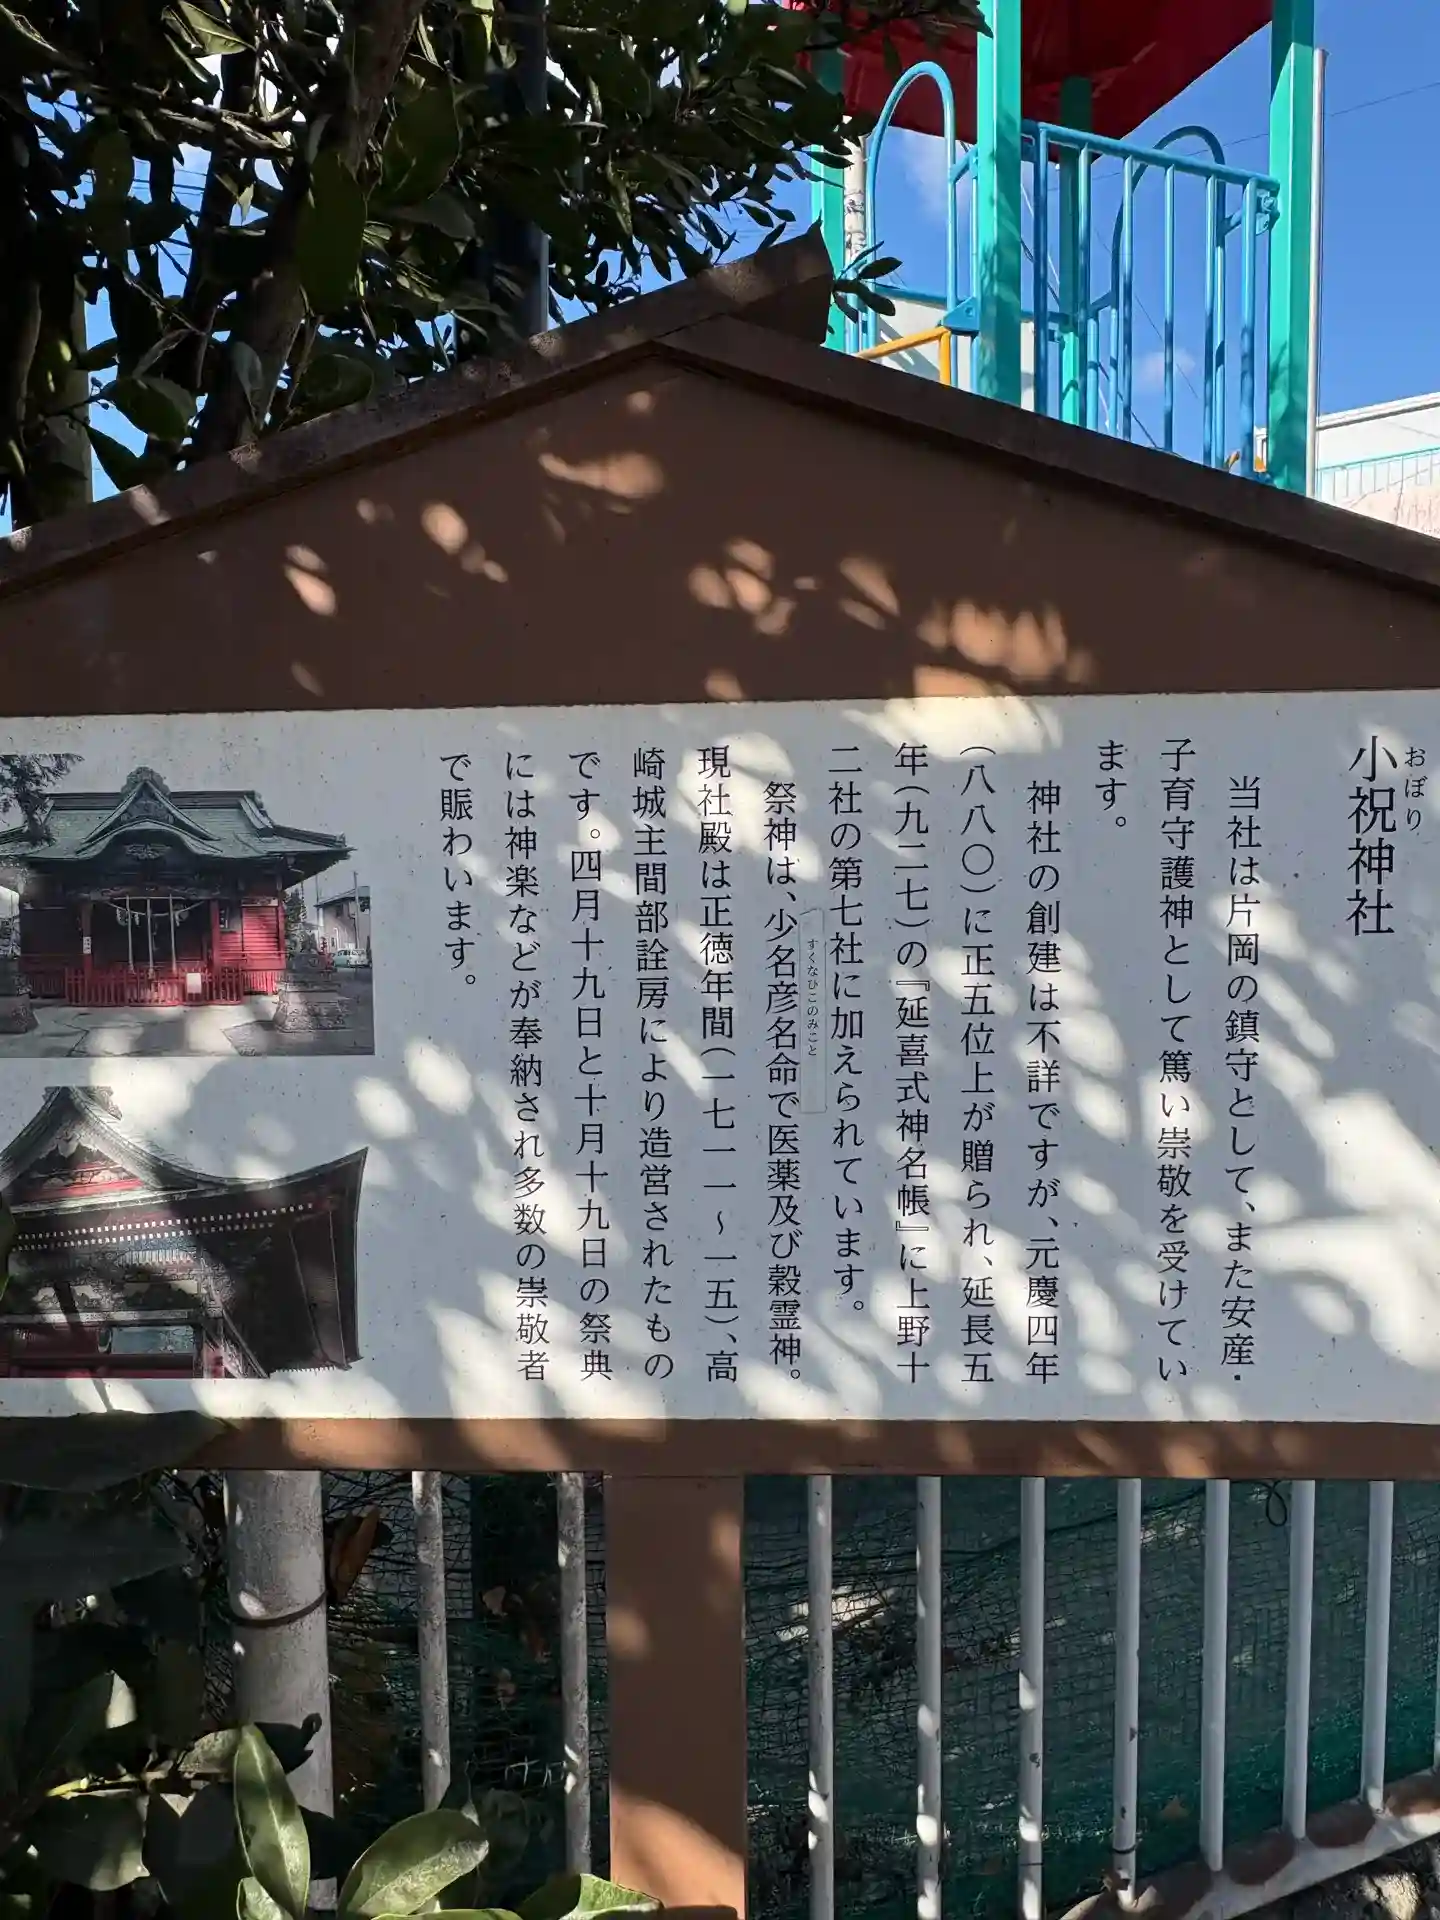 小祝神社
おぼり
当社は片岡の鎮守として、また安産・
子育守護神として篤い崇敬を受けてい
ます。
神社の創建は不詳ですが、元慶四年
(八八〇)に正五位上が贈られ、延長五
年(九二七)の『延喜式神名帳』に上野十
二社の第七社に加えられています。
祭神は、少名彦名命で医薬及び穀霊神。
すくなひこのみこと
現社殿は正徳年間(一七一一～一五)、高
崎城主間部詮房により造営されたもの
です。四月十九日と十月十九日の祭典
には神楽などが奉納され多数の崇敬者
で賑わいます。